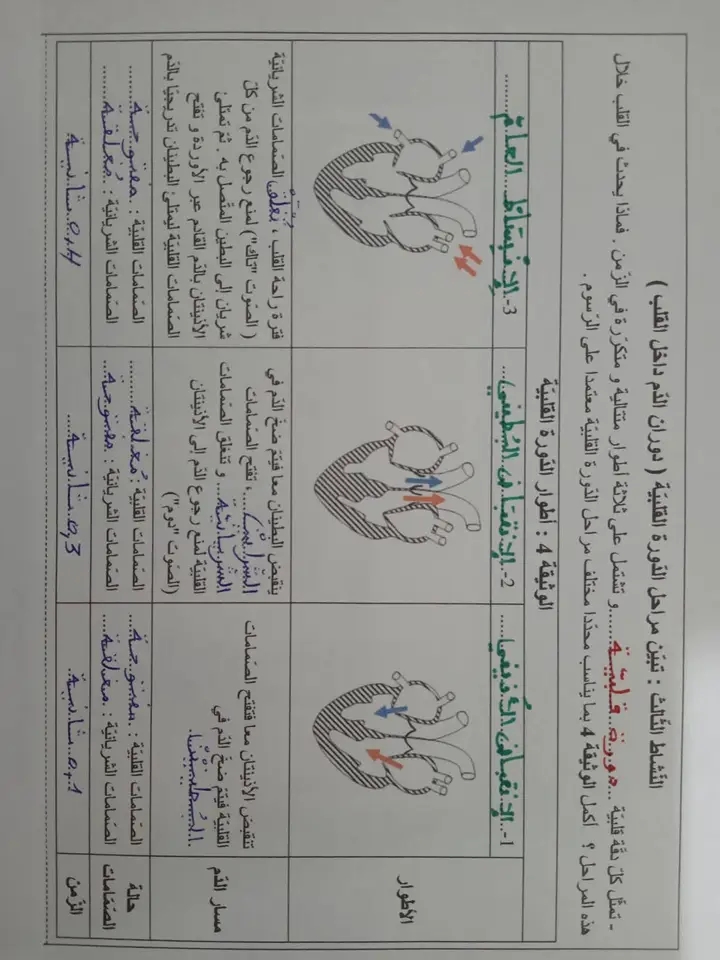 النّشاط الثّالث : تبيّن مراحل الدّورة القلبيّة ( دوران الدّم داخل القلب )
- تمثّل كلّ دقّة قلبيّة ...دورة قلبيّة...... و تشتمل على ثلاثة أطوار متتالية و متكرّرة في الزّمن . فماذا يحدث في القلب خلال
هذه المراحل ؟ أكمل الوثيقة 4 بما يناسب محدّدا مختلف مراحل الدّورة القلبيّة معتمدا على الرّسوم .
الوثيقة 4 : أطوار الدّورة القلبيّة
الأطوار
1-..الإنقباض الأُذيني.....
2-..الإنقباض البُطيني....
3-..الإنبساط العام.......
مسار الدّم
تنقبض الأذينتان معا فتفتح الصّمامات
القلبيّة فيتمّ ضخّ الدّم في
البطينين.
ينقبض البطينان معا فيتمّ ضخّ الدّم في
الشرايين......، تفتح الصّمامات
الشريانية.... و تنغلق الصّمامات
القلبيّة لمنع رجوع الدّم إلى الأذينتان
(الصّوت "دوم")
فترة راحة القلب ، تُغلق الصّمامات الشريانيّة
( الصّوت "تاك") لمنع رجوع الدّم من كلّ
شريان إلى البطين المتّصل به . ثمّ تمتلئ
الأذينتان بالدّم القادم عبر الأوردة و تفتح
الصّمامات القلبيّة ليمتلئ البطينان تدريجيّا بالدّم
حالة
الصّمامات
الصّمامات القلبيّة : مفتوحة....
الصّمامات الشريانيّة : مغلقة....
الصّمامات القلبيّة : مُغلقة.........
الصّمامات الشريانيّة : مفتوحة....
الصّمامات القلبيّة : مفتوحة........
الصّمامات الشريانيّة : مُغلقة........
الزّمن
0,1 ثانية
0,3 ثانية....
0,4 ثانية